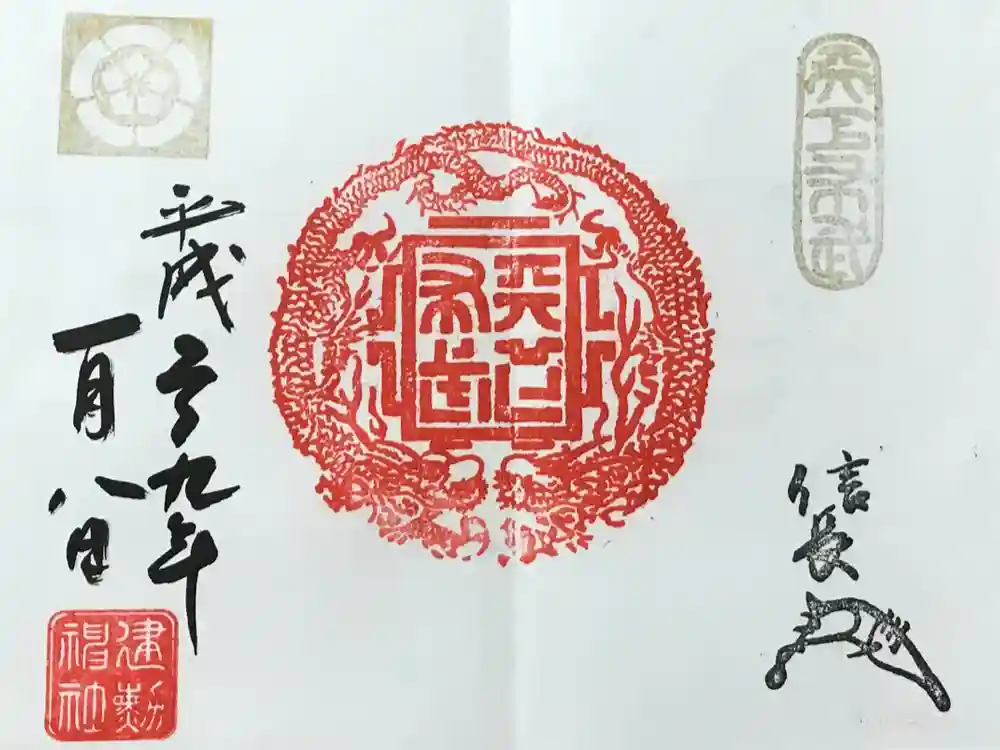 天下布武
信長
天下
布武
平成二九年
一月八日
建勲
神社